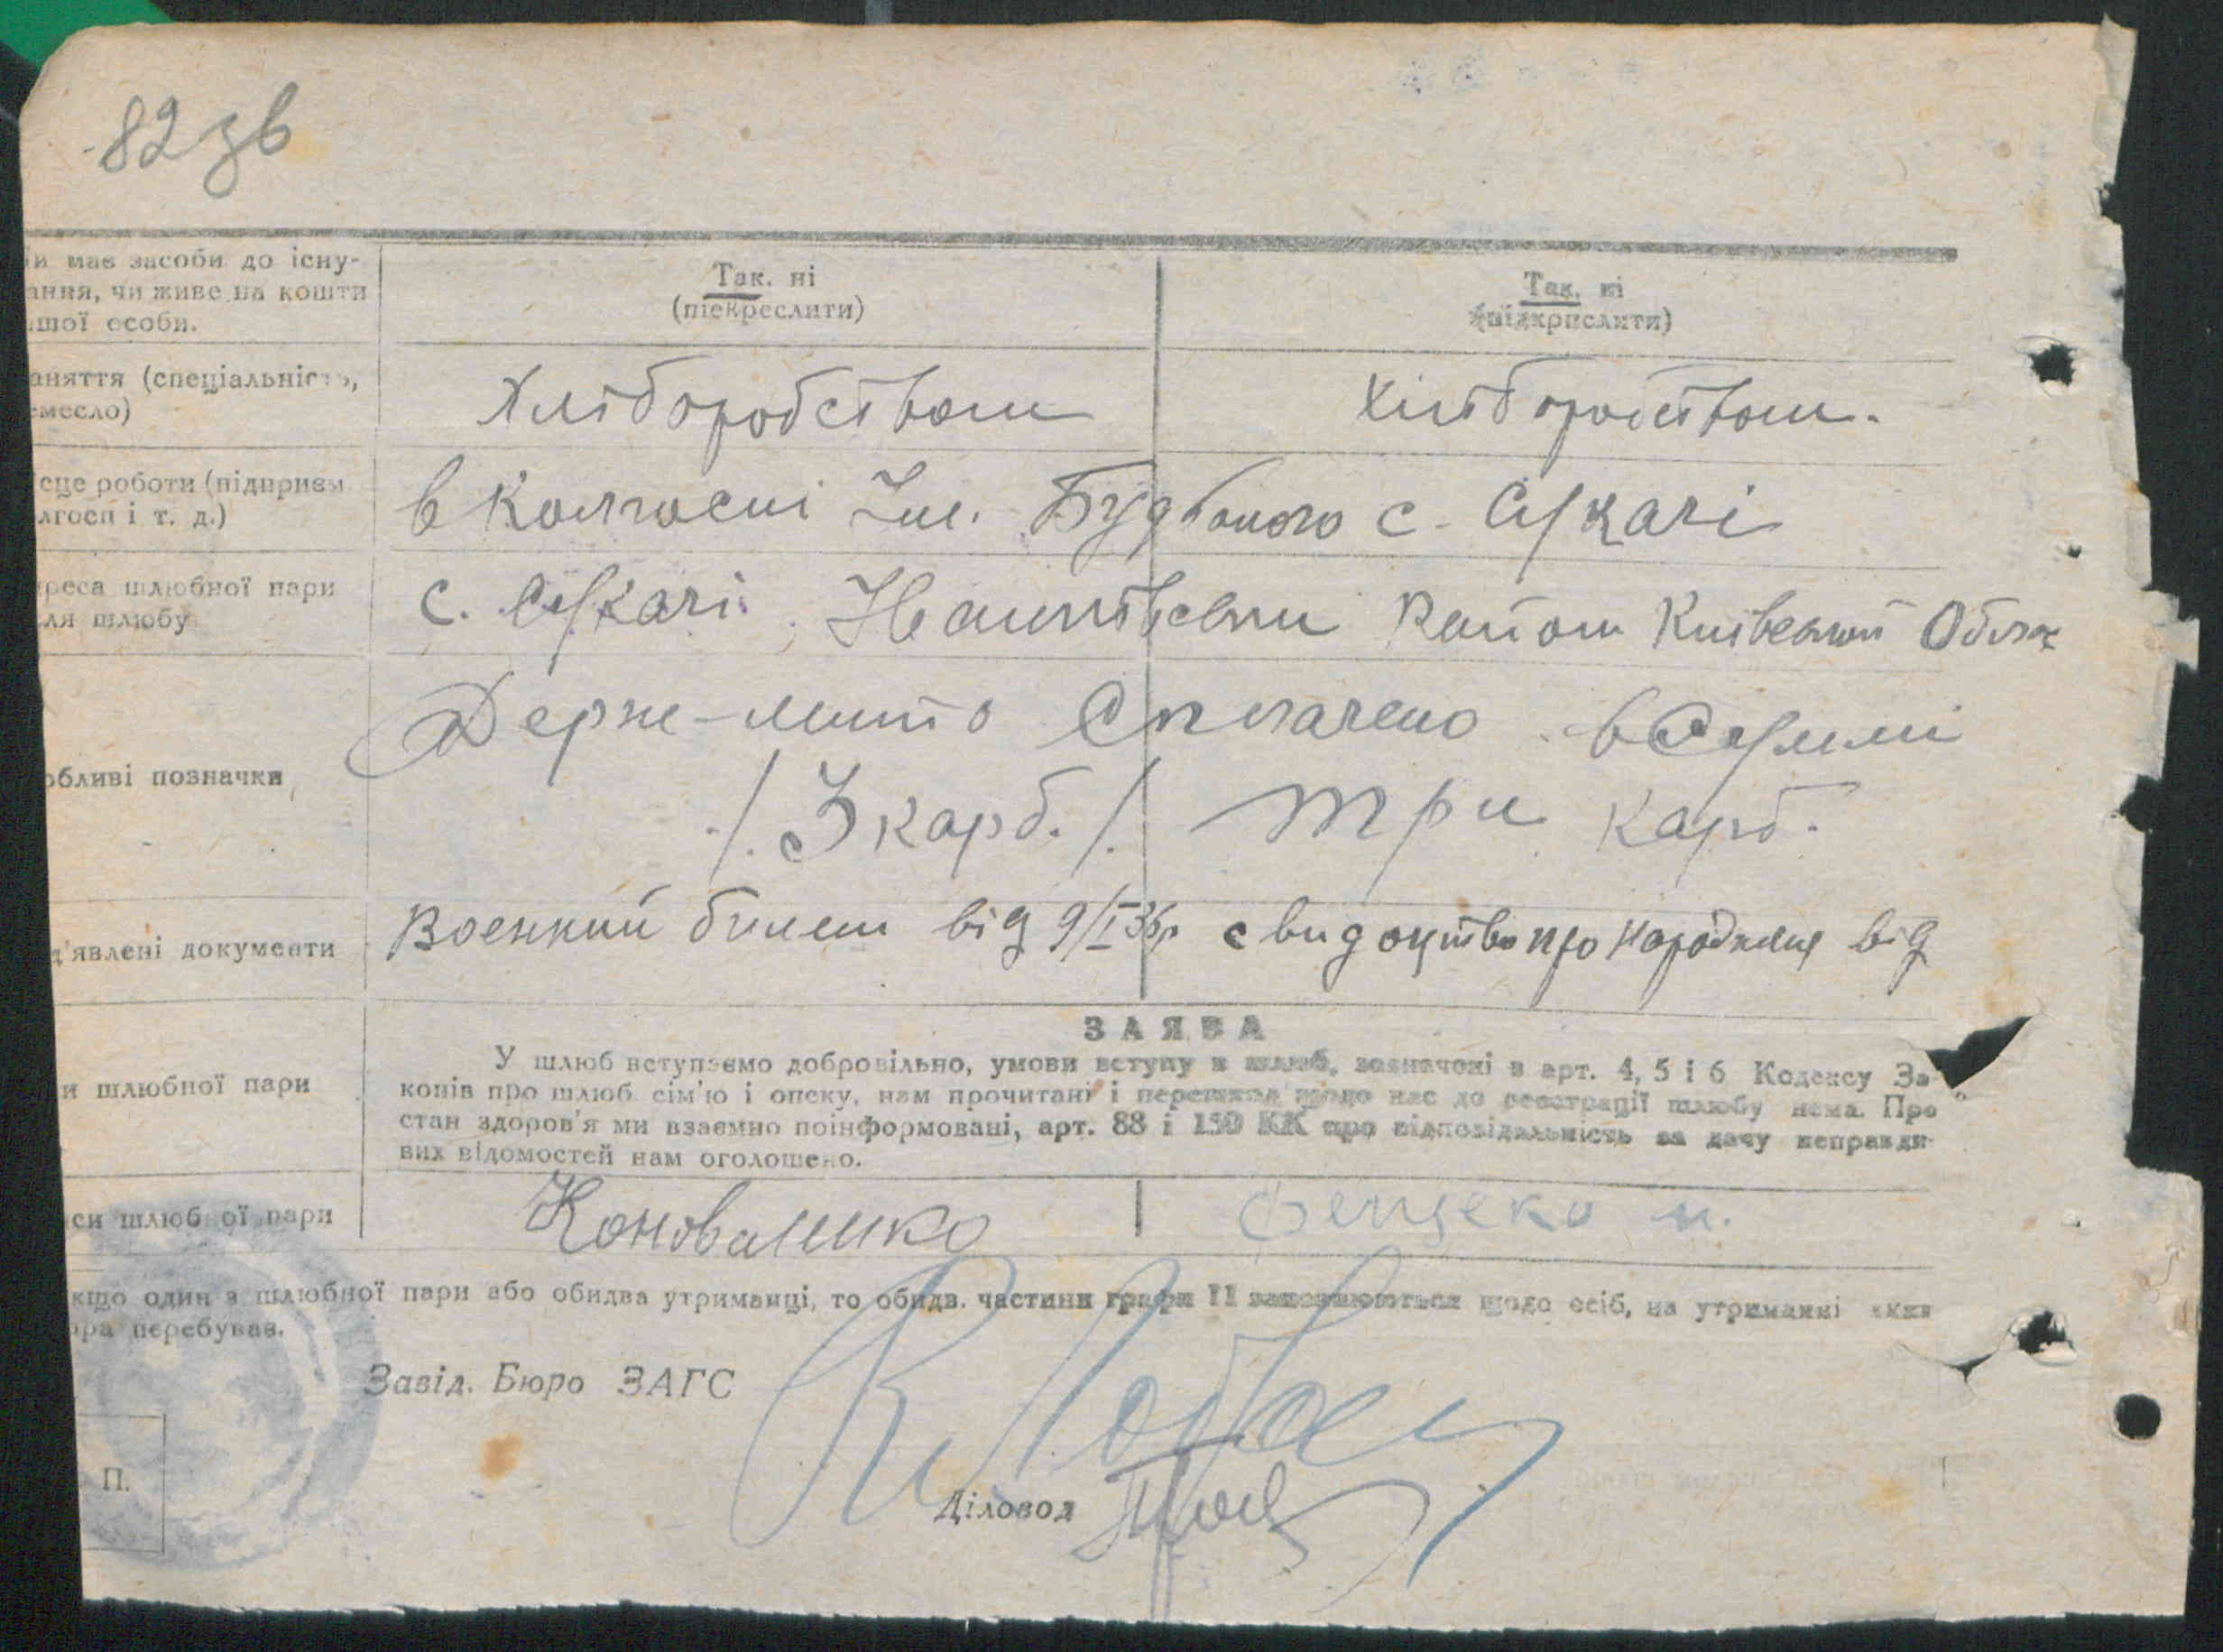 82 зв
и має засоби до існу-
ання, чи живе на кошти
шої особи.
Так. ні
(піекреслити)
Так. ні
(підкрислити)
аняття (спеціальність,
емесло)
Хліборобством
Хліборобством.
сце роботи (підприєм
лгосп і т. д.)
в Колгоспі Ім. Будьоного с. Сукачі
реса шлюбної пари
ля шлюбу
с. Сукачі Іванківський Район Київський Облас
обливі позначки
Держ-мито Сплачено в Суммі
/.3 карб./. три карб.
д'явлені документи
Военний билет від 9/I 36р свидоцтво про народження від
ЗАЯВА
и шлюбної пари
У шлюб вступаємо добровільно, умови вступу в шлюб, зазначені в арт. 4, 5 і 6 Кодексу За-
конів про шлюб сім'ю і опеку, нам прочитані і перешкод щодо нас до реєстрації шлюбу нема. Про
стан здоров'я ми взаємно поінформовані, арт. 88 і 150 КК про відповідальність за дачу неправди-
вих відомостей нам оголошено.
си шлюбної пари
Коноваленко
Фещенко
кщо один з шлюбної пари або обидва утриманці, то обидв. частини графи 11 заповнюються щодо осіб, на утриманні яких
ра перебував.
Завід. Бюро ЗАГС
П.
Діловод